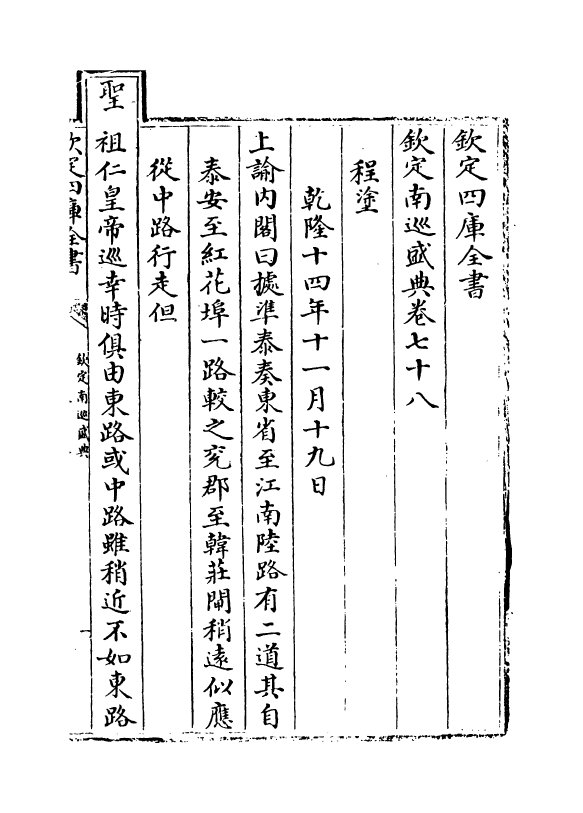 欽定四庫全書
欽定南巡盛典卷七十八
程塗
乾隆十四年十一月十九日
上諭内閣曰據準泰奏東省至江南陸路有二道其自
泰安至紅花埠一路較之兖郡至韓莊閘稍逺似應
從中路行走但
聖祖仁皇帝巡幸時俱由東路或中路雖稍近不如東路
欽定四庫全書
欽定南巡盛典